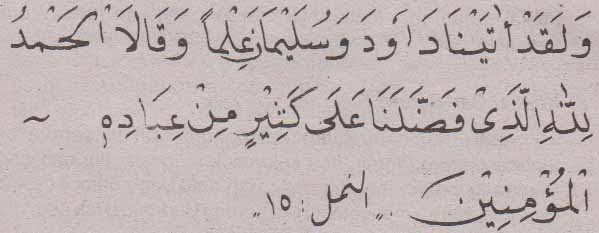 وَلَقَدْ اٰتَيْنَا دَاوٗدَ وَسُلَيْمَانَ عِلْمًا وَقَالَا الْحَمْدُ
لِلّٰهِ الَّذِىْ فَضَّلَنَا عَلَى كَثِيْرٍ مِنْ عِبَادِهٖ ~
الْمُؤْمِنِيْنَ . „ النمل : ١٥ „